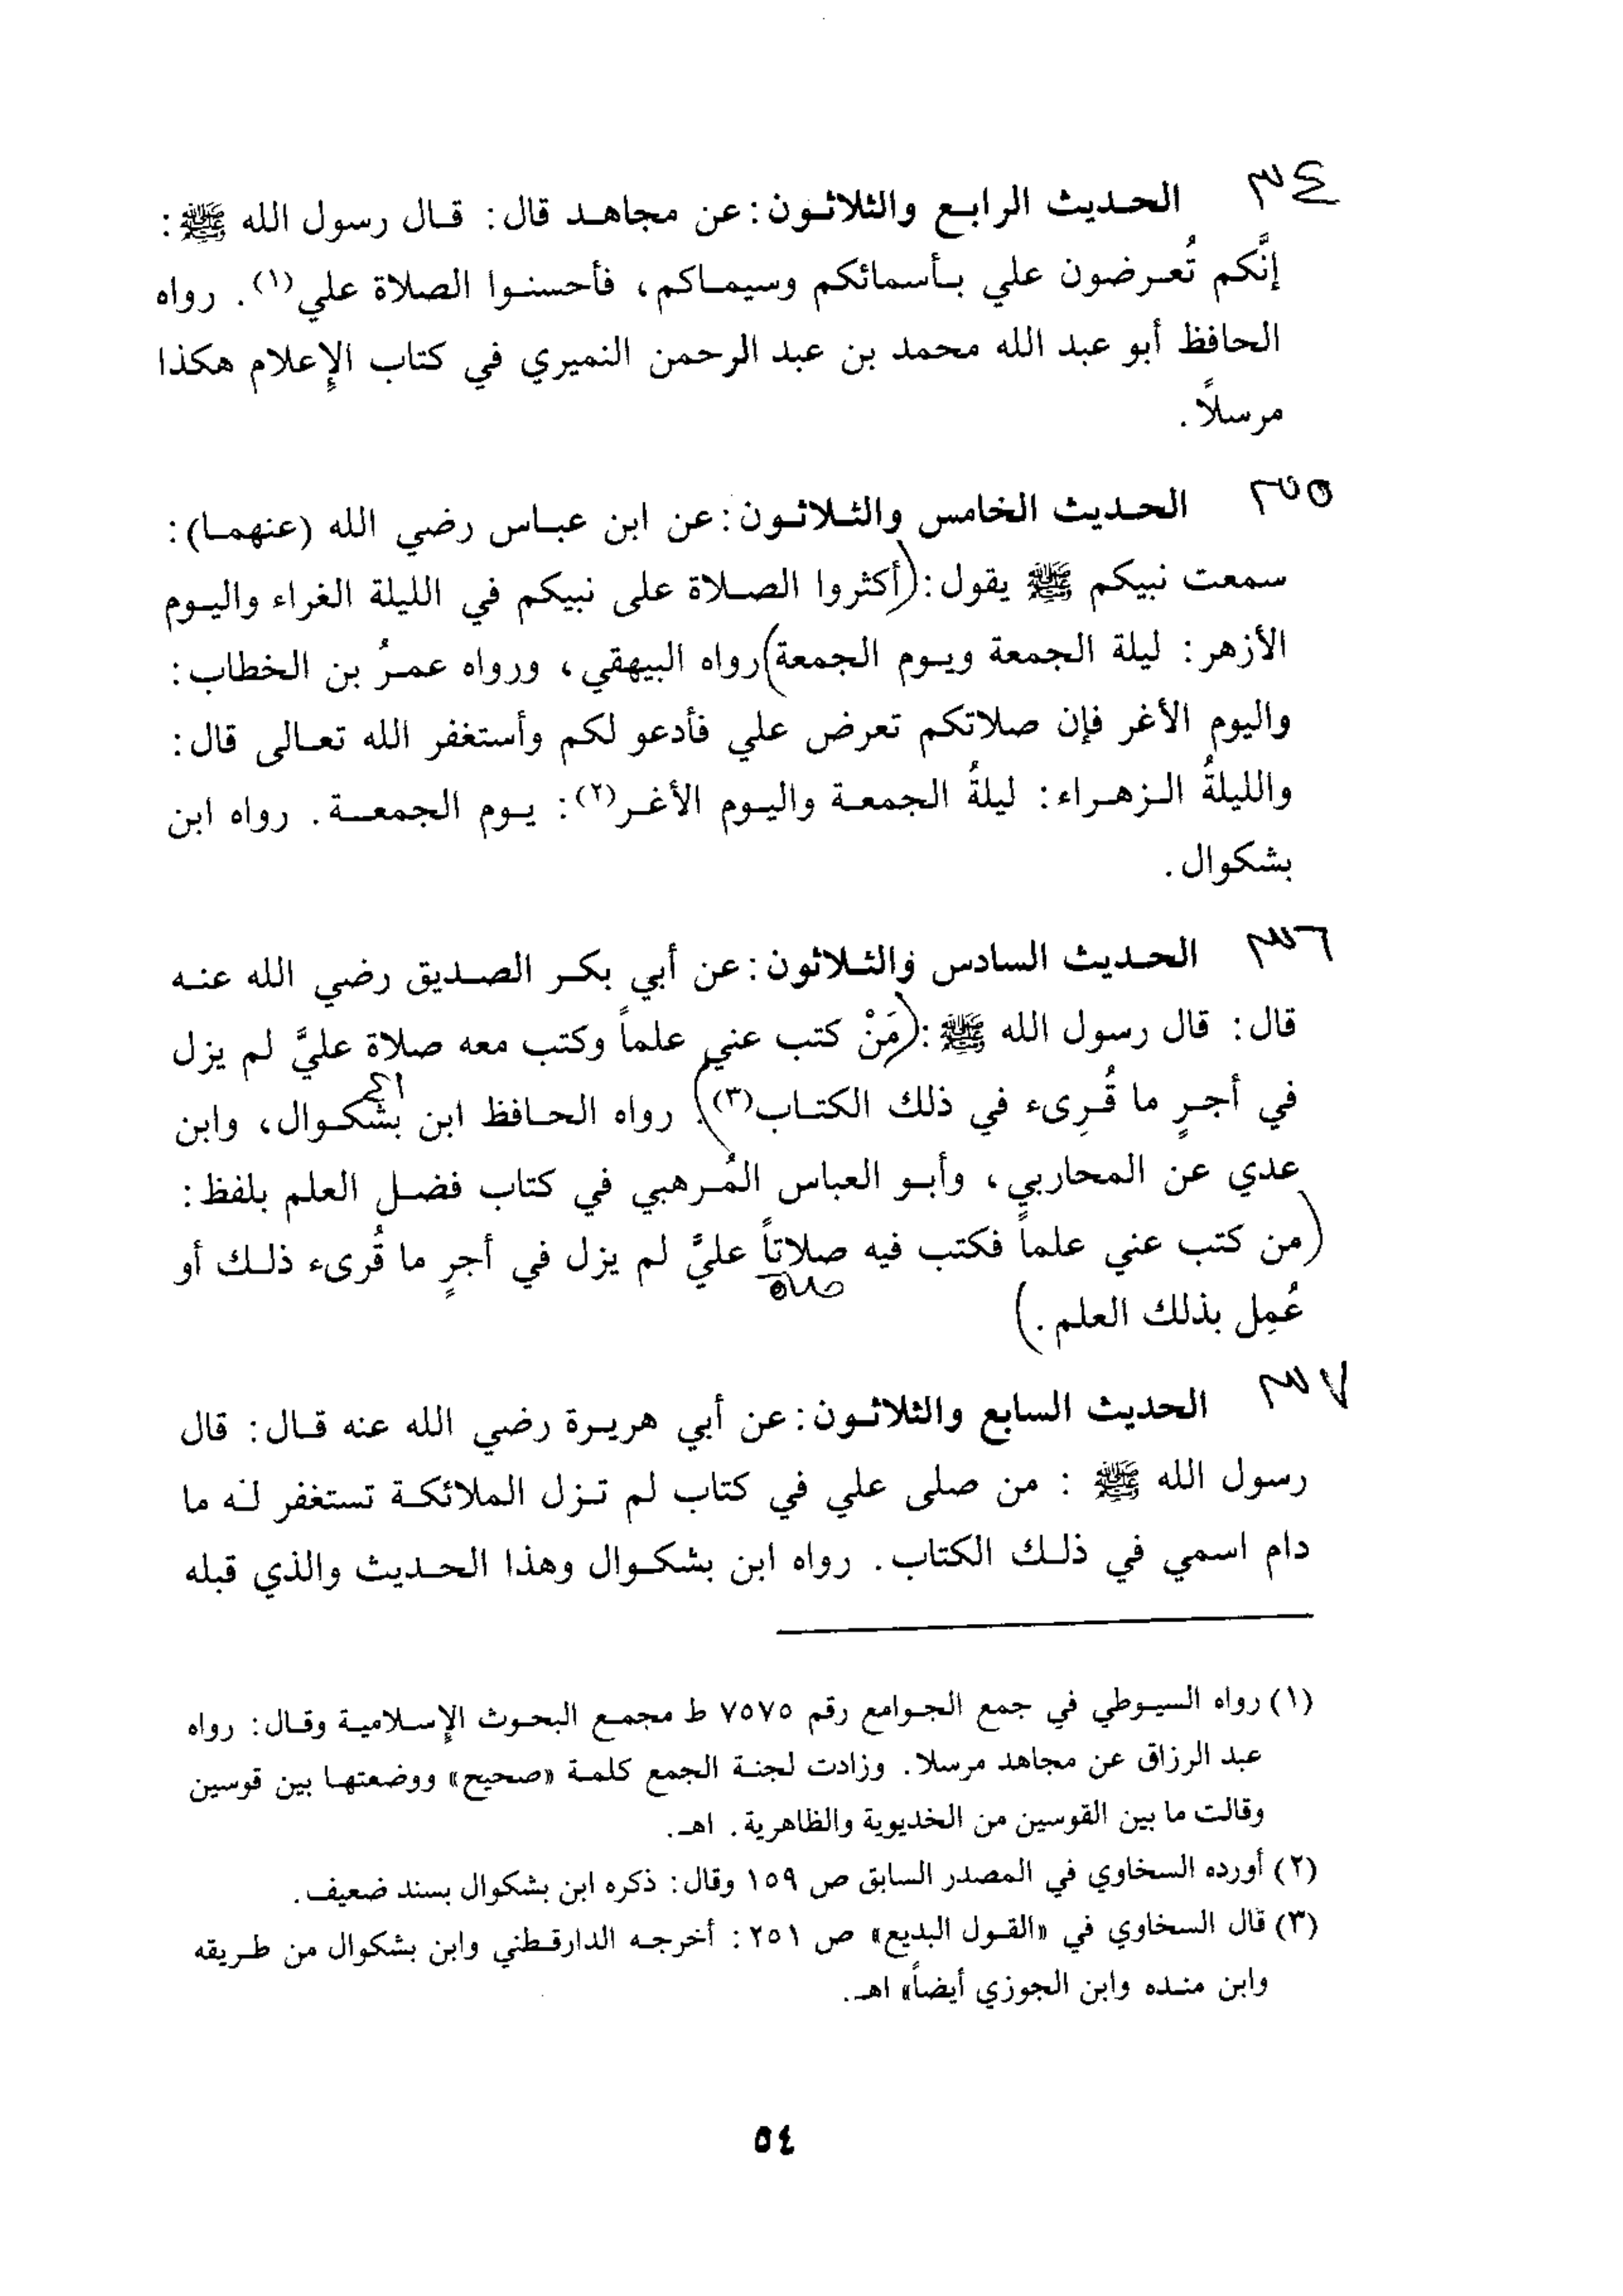 ٣٤ الحديث الرابع والثلاثون: عن مجاهد قال: قال رسول الله ﷺ:
إنَّكم تُعرضون علي بأسمائكم وسيماكم، فأحسنوا الصلاة علي(١). رواه
الحافظ أبو عبد الله محمد بن عبد الرحمن النميري في كتاب الإِعلام هكذا
مرسلاً.
٣٥ الحديث الخامس والثلاثون: عن ابن عباس رضي الله (عنهما):
سمعت نبيكم ﷺ يقول: (أكثروا الصلاة على نبيكم في الليلة الغراء واليوم
الأزهر: ليلة الجمعة ويوم الجمعة) رواه البيهقي، ورواه عمرُ بن الخطاب:
واليوم الأغر فإن صلاتكم تعرض علي فأدعو لكم وأستغفر الله تعالى قال:
والليلةُ الزهراء: ليلةُ الجمعة واليوم الأغر(٢): يوم الجمعة. رواه ابن
بشكوال.
٣٦ الحديث السادس والثلاثون: عن أبي بكر الصديق رضي الله عنه
قال: قال رسول الله ﷺ: (مَنْ كتب عني علماً وكتب معه صلاة عليَّ لم يزل
في أجرٍ ما قُرِىء في ذلك الكتاب(٣)). رواه الحافظ ابن بشكوال، وابن
عدي عن المحاربي، وأبو العباس المُرهبي في كتاب فضل العلم بلفظ:
(من كتب عني علماً فكتب فيه صلاتاً عليَّ لم يزل في أجرٍ ما قُرىء ذلك أو
صلاة
عُمِل بذلك العلم.)
٣٧ الحديث السابع والثلاثون: عن أبي هريرة رضي الله عنه قال: قال
رسول الله ﷺ : من صلى علي في كتاب لم تزل الملائكة تستغفر له ما
دام اسمي في ذلك الكتاب. رواه ابن بشكوال وهذا الحديث والذي قبله
(١) رواه السيوطي في جمع الجوامع رقم ٧٥٧٥ ط مجمع البحوث الإِسلامية وقال: رواه
عبد الرزاق عن مجاهد مرسلا. وزادت لجنة الجمع كلمة «صحيح» ووضعتها بين قوسين
وقالت ما بين القوسين من الخديوية والظاهرية. اهـ.
(٢) أورده السخاوي في المصدر السابق ص ١٥٩ وقال: ذكره ابن بشكوال بسند ضعيف.
(٣) قال السخاوي في «القول البديع» ص ٢٥١: أخرجه الدارقطني وابن بشكوال من طريقه
وابن منده وابن الجوزي أيضاً» اهـ.
٥٤